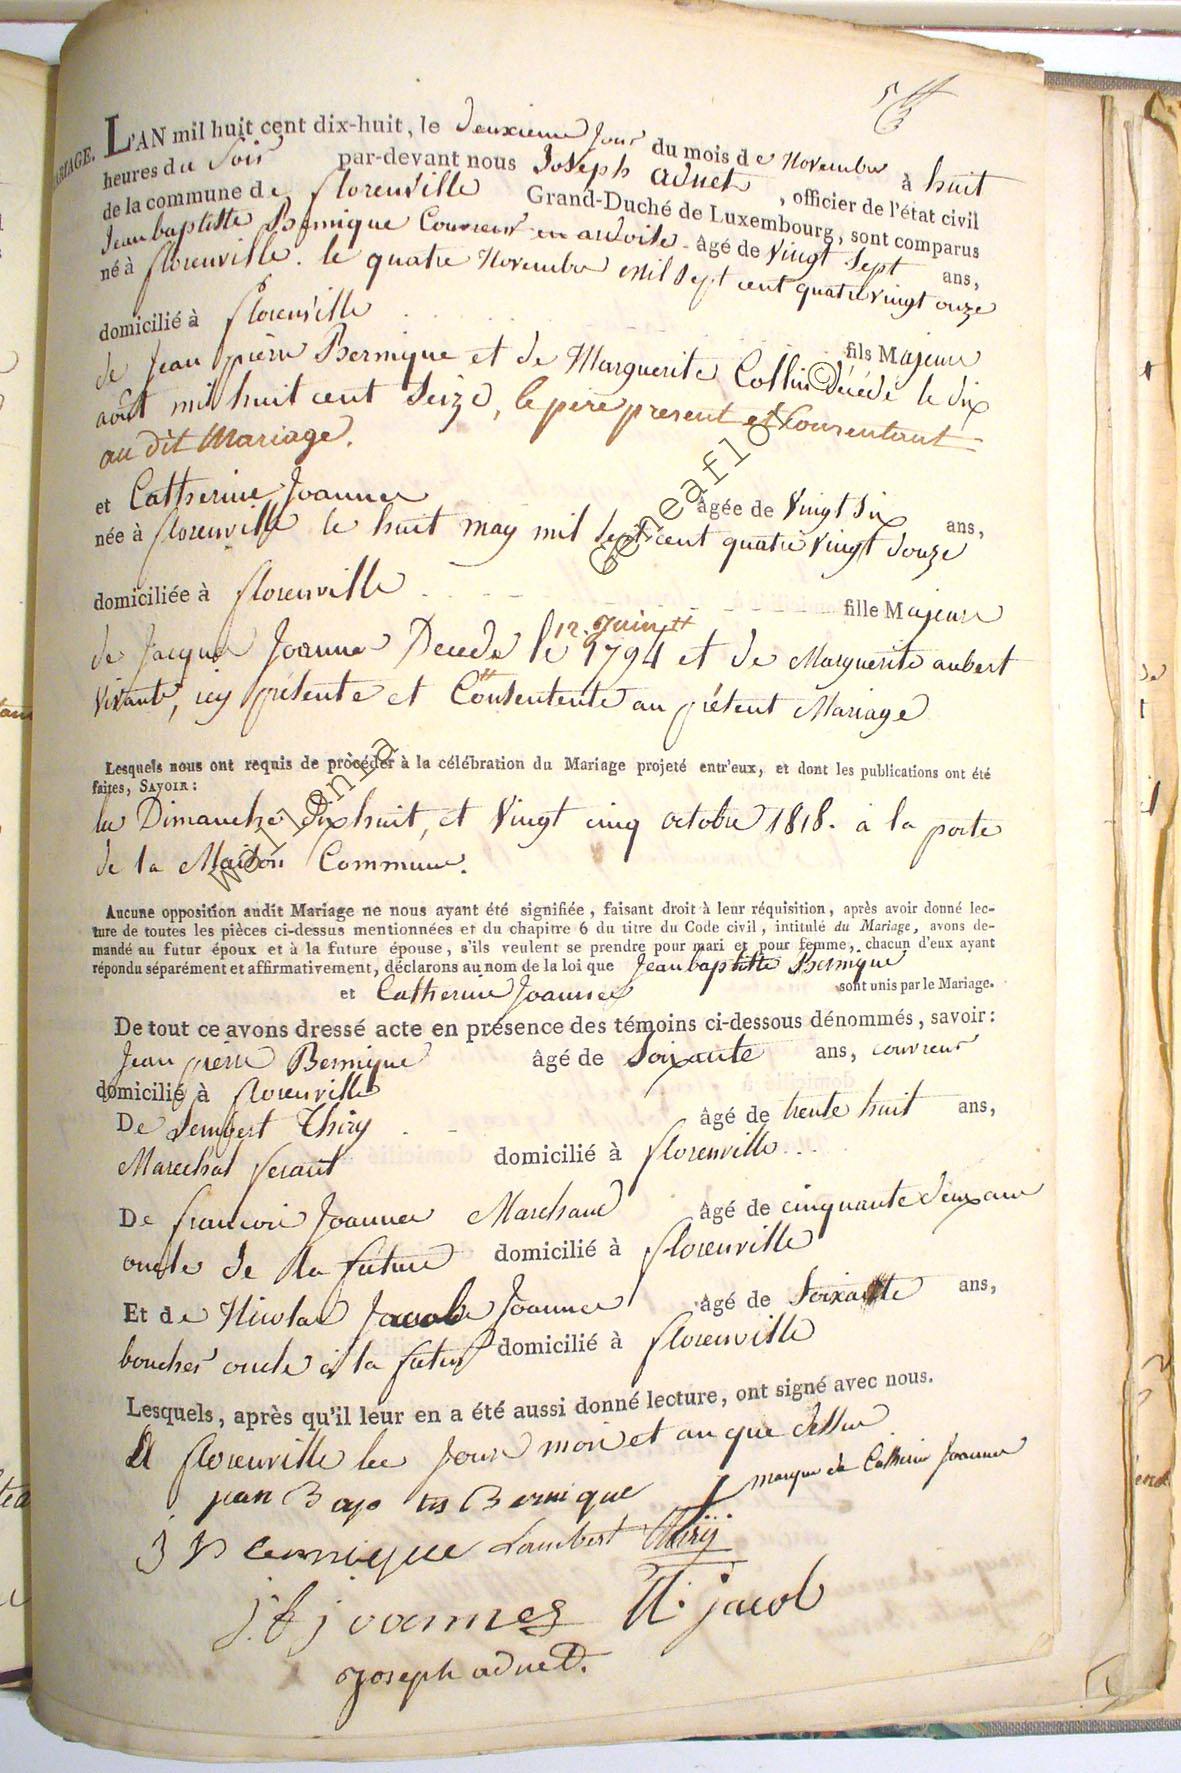 MARIAGE.
L'AN mil huit cent dix-huit, le deuxieme Jour du mois de Novembre à huit
heures du Soir par-devant nous Joseph adnet, officier de l'état civil
de la commune de florenville Grand-Duché de Luxembourg, sont comparus
Jean baptiste Bernique Couvreur en ardoise âgé de Vingt Sept ans,
né à florenville. le quatre Novembre mil Sept cent quatre vingt onze
domicilié à florenville fils Majeure
de Jean pierre Bernique et de Marguerite Collin décédé le dix
août mil huit cent Seize, le pere present et Consentant
au dit Mariage.
et Catherine Joannes âgée de Vingt Six ans,
née à florenville le huit may mil Sept cent quatre Vingt douze
domiciliée à florenville fille Majeure
de Jacque Joannes Decede le 12 Juin 1794 et de Marguerite aubert
Vivante, icy présente et Consentente au présent Mariage
Lesquels nous ont requis de procéder à la célébration du Mariage projeté entr'eux, et dont les publications ont été
faites, SAVOIR:
les Dimanche Dix huit, et Vingt cinq octobre 1818. a la porte
de la Maison Commune.
Aucune opposition audit Mariage ne nous ayant été signifiée, faisant droit à leur réquisition, après avoir donné lec-
ture de toutes les pièces ci-dessus mentionnées et du chapitre 6 du titre du Code civil, intitulé du Mariage, avons de-
mandé au futur époux et à la future épouse, s'ils veulent se prendre pour mari et pour femme, chacun d'eux ayant
répondu séparément et affirmativement, déclarons au nom de la loi que Jean baptiste Bernique
et Catherine Joannes sont unis par le Mariage.
De tout ce avons dressé acte en présence des témoins ci-dessous dénommés, savoir:
Jean pierre Bernique âgé de Soixante ans, couvreur
domicilié à florenville
De Lembert Thiry âgé de trente huit ans,
Marechal ferant domicilié à florenville
De francois Joannes Marchand âgé de cinquante deux ans
oncle de la future domicilié à florenville
Et de Nicolas Jacob Joannes âgé de Soixante ans,
boucher oncle à la future domicilié à florenville
Lesquels, après qu'il leur en a été aussi donné lecture, ont signé avec nous.
A florenville les Jour mois et an que dessus
jean Bap tis Bernique marque de Catherine Joannes
J P Bernique Lambert Thirÿ
j. f joannes N. jacob
Joseph adnet.
© Geneaflor wallonia